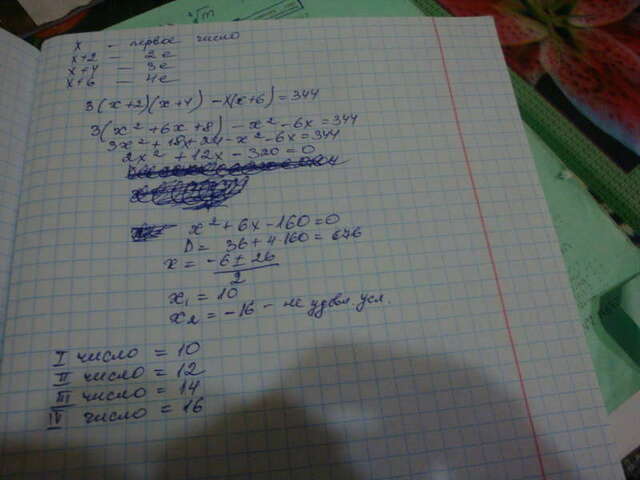 x - первое число
x+2 - 2е
x+4 - 3е
x+6 - 4е
3(x+2)(x+4) - x(x+6) = 344
3(x² + 6x + 8) - x² - 6x = 344
3x² + 18x + 24 - x² - 6x = 344
2x² + 12x - 320 = 0
x² + 6x - 160 = 0
D = 36 + 4·160 = 676
x = -6 ± 26
2
x₁ = 10
x₂ = -16 - не удовл. усл.
I число = 10
II число = 12
III число = 14
IV число = 16